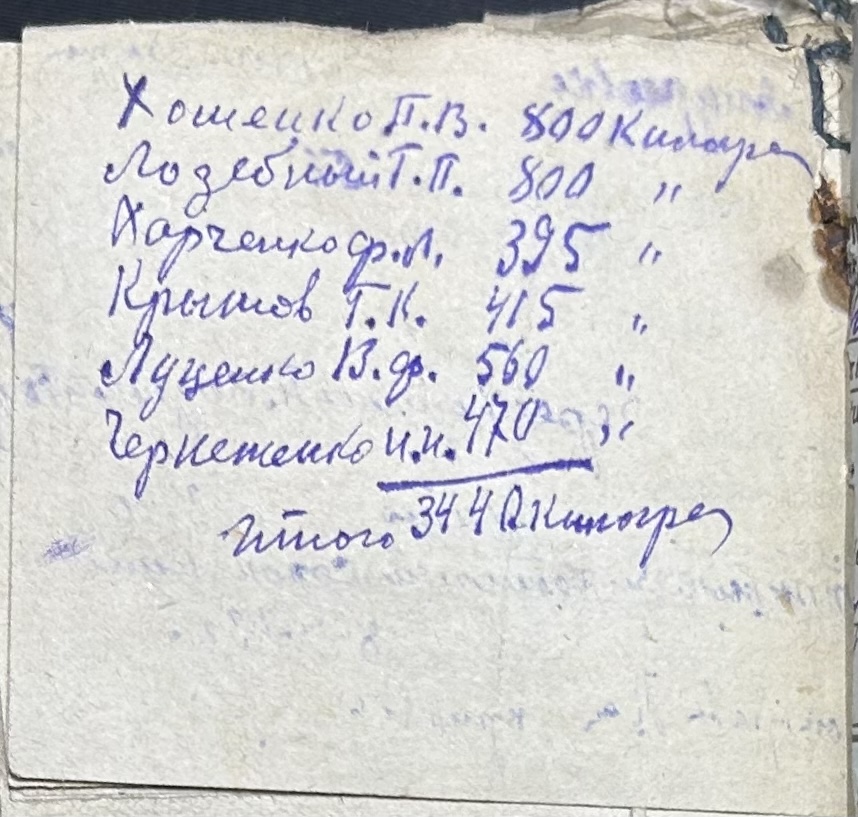 Хошенко П.В. 800 Килогр
Лозебный Г.П. 800 "
Харченко ф.л. 395 "
Крытов Г.К. 415 "
Луценко В.ф. 560 "
Чернеженко и.и. 470 "
Итого 3440 Килогр